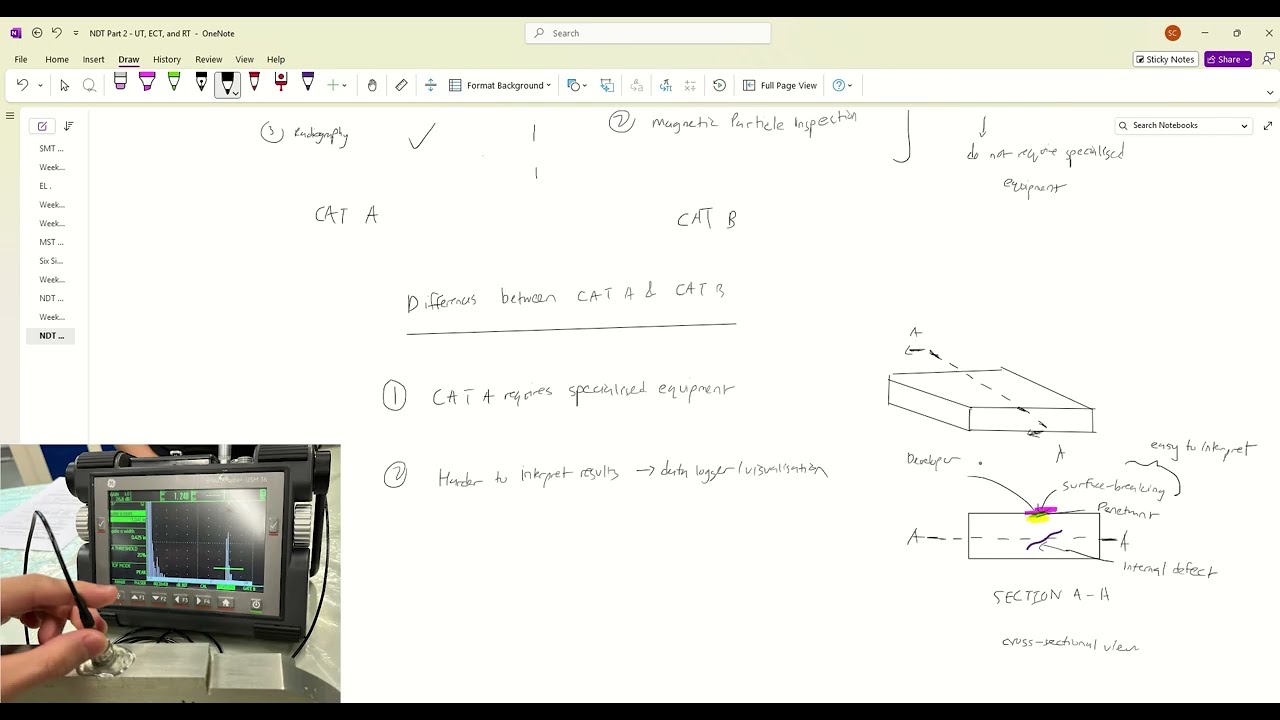 NDT Part 2 - UT, ECT, and RT - OneNote
Search
SC
File Home Insert Draw History Review View Help
Sticky Notes
Share
Format Background
Full Page View
Search Notebooks
SMT ...
Week...
EL .
Week...
Week...
MST ...
Six Si...
Week...
NDT ...
Week...
NDT ...
③ Radiography
② Magnetic Particle Inspection
do not require specialised
equipment
CAT A
CAT B
Differences between CAT A & CAT B
① CAT A requires specialised equipment
② Harder to interpret results → data logger/visualisation
A
A
easy to interpret
Developer
surface-breaking
Penetrant
A
A
Internal defect
SECTION A-A
cross-sectional view
1.240